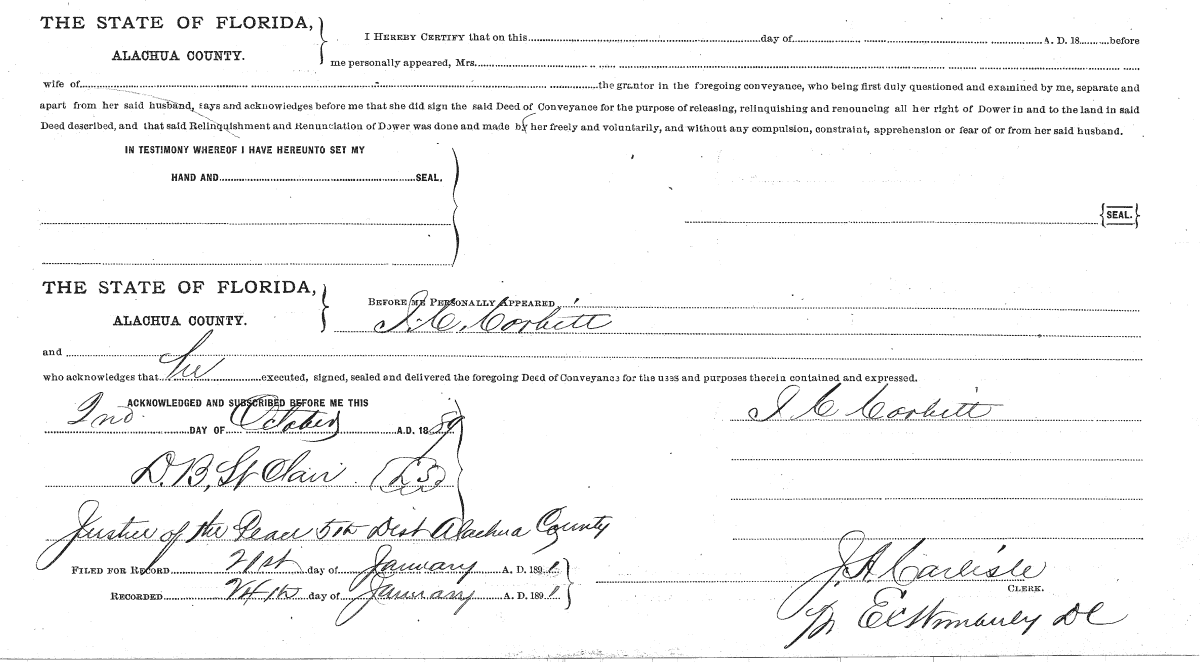 THE STATE OF FLORIDA,
ALACHUA COUNTY.
I HEREBY CERTIFY that on this day of A. D. 18 before
me personally appeared, Mrs.
wife of the grantor in the foregoing conveyance, who being first duly questioned and examined by me, separate and
apart from her said husband, says and acknowledges before me that she did sign the said Deed of Conveyance for the purpose of releasing, relinquishing and renouncing all her right of Dower in and to the land in said
Deed described, and that said Relinquishment and Renunciation of Dower was done and made by her freely and voluntarily, and without any compulsion, constraint, apprehension or fear of or from her said husband.
IN TESTIMONY WHEREOF I HAVE HEREUNTO SET MY
HAND AND SEAL.
SEAL.
THE STATE OF FLORIDA,
ALACHUA COUNTY.
BEFORE ME PERSONALLY APPEARED
I. C. Corbett
and
who acknowledges that he executed, signed, sealed and delivered the foregoing Deed of Conveyance for the uses and purposes therein contained and expressed.
ACKNOWLEDGED AND SUBSCRIBED BEFORE ME THIS
2nd DAY OF October A.D. 1889
I C Corbett
D. B. St Clair L S
Justice of the Peace 5th Dist Alachua County
FILED FOR RECORD 21st day of January A. D. 1891
RECORDED 24th day of January A. D. 1891
J. A. Carlisle
CLERK.
DC